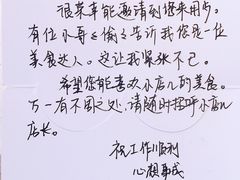 很荣幸能邀请到您来用餐。
有位小哥《偷》告诉我您是一位
美食达人。这让我紧张不已。
希望您能喜欢小店儿的美食。
万一有不周之处,请随时招呼小店儿
店长。
祝工作顺利
心想事成